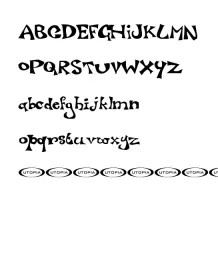 ABCDEFGHiJKLMN
oPQRSTUVWXYZ
abcdefghijklmn
opqrstuvwxyz
UTOPIA UTOPIA UTOPIA UTOPIA UTOPIA UTOPIA UTOPIA